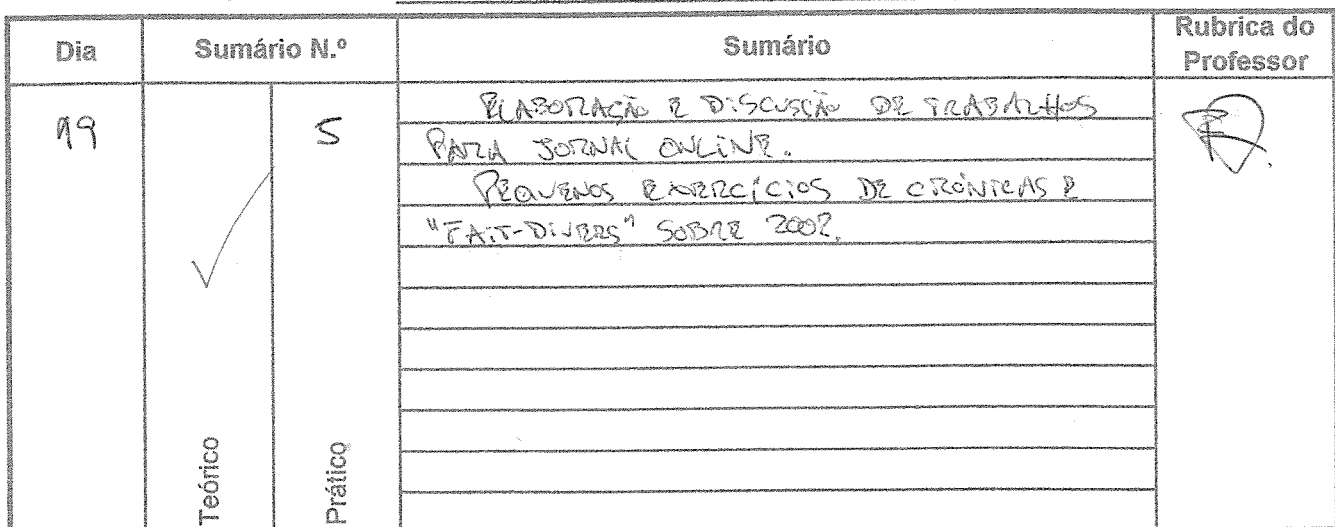 Dia Sumário N.º Sumário Rubrica do Professor
19 5 ELABORAÇÃO E DISCUSSÃO DE TRABALHOS
PARA JORNAL ONLINE.
PEQUENOS EXERCÍCIOS DE CRÓNICAS E
"FAIT-DIVERS" SOBRE 2002.
Teórico Prático